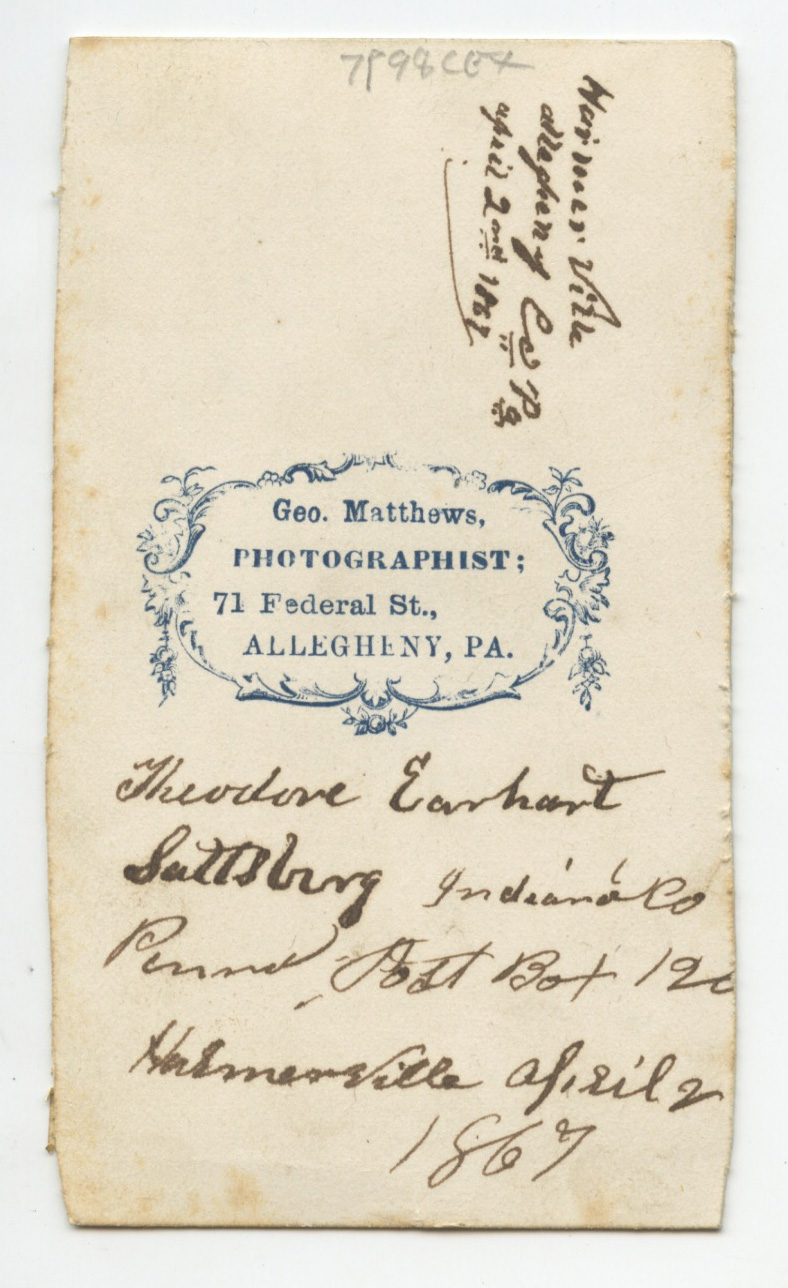 7898CEX
Harmer Ville
allegheny Co Pa
april 2nd 1867
Geo. Matthews,
PHOTOGRAPHIST;
71 Federal St.,
ALLEGHENY, PA.
Theodore Earhart
Saltsburg Indiana Co
Penna Post Box 120
Harmerville April 2
1867